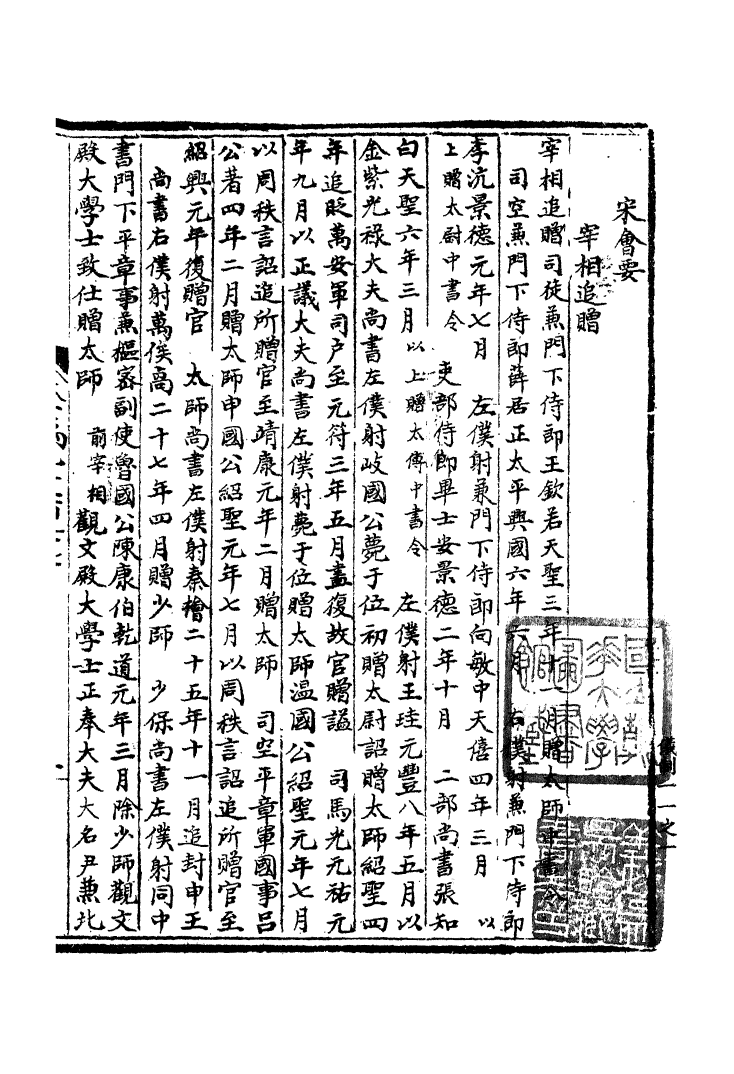 宋會要
宰相追贈
宰相追贈司徒兼門下侍郎王欽若天聖三年十一月贈太師中書令
司空兼門下侍郎薛居正太平興國六年六月　右僕射兼門下侍郎
李沆景德元年七月　左僕射兼門下侍郎向敏中天僖四年三月　以
上贈太尉中書令　吏部侍郎畢士安景德二年十月　二部尚書張知
白天聖六年三月以上贈太傅中書令　左僕射王珪元豐八年五月以
金紫光祿大夫尚書左僕射岐國公薨于位初贈太尉詔贈太師紹聖四
年追貶萬安軍司户至元符三年五月盡復故官贈謚　司馬光元祐元
年九月以正議大夫尚書左僕射薨于位贈太師溫國公紹聖元年七月
以周秩言詔追所贈官至靖康元年二月贈太師　司空平章軍國事呂
公著四年二月贈太師申國公紹聖元年七月以周秩言詔追所贈官至
紹興元年復贈官　太師尚書左僕射秦檜二十五年十一月追封申王
尚書右僕射萬俟卨二十七年四月贈少師　少保尚書左僕射同中
書門下平章事兼樞密副使魯國公陳康伯乾道元年三月除少師觀文
殿大學士致仕贈太師　前宰相觀文殿大學士正奉大夫大名尹兼北